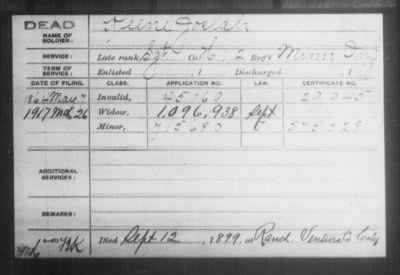 DEAD
NAME OF SOLDIER:
SERVICE: Late rank, Sgt Co. , 2 Reg't Minn Inf
TERM OF SERVICE: Enlisted , 1 Discharged , 1
DATE OF FILING. CLASS. APPLICATION NO. LAW. CERTIFICATE NO.
1864 May 7 Invalid, 45160
1917 26 Widow, 1,096,938 Sept
Minor, 715680 575028
ADDITIONAL SERVICES:
REMARKS:
Died Sept 12 , 1899, at Ranch Ventura Co Caly